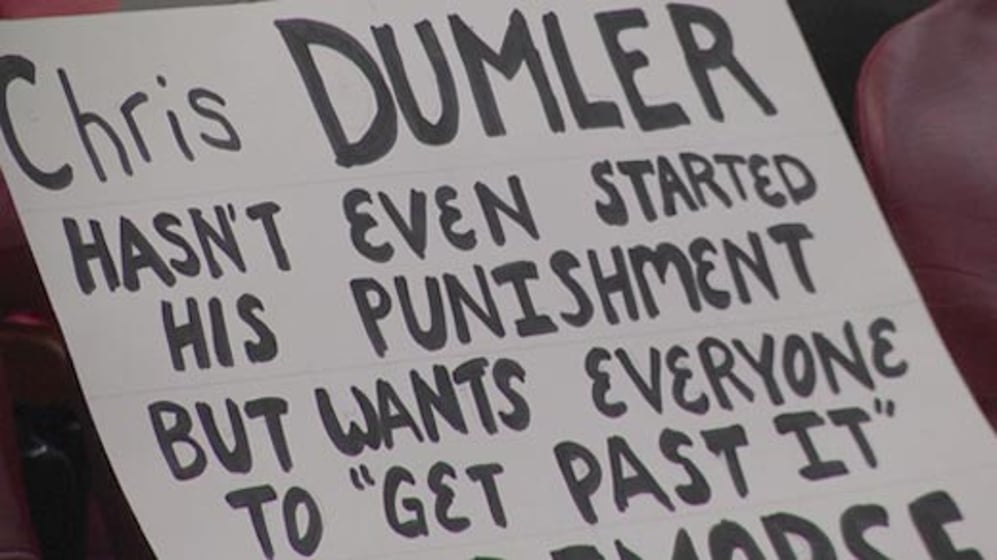 Chris DUMLER
HASN'T EVEN STARTED
HIS PUNISHMENT
BUT WANTS EVERYONE
TO "GET PAST IT"